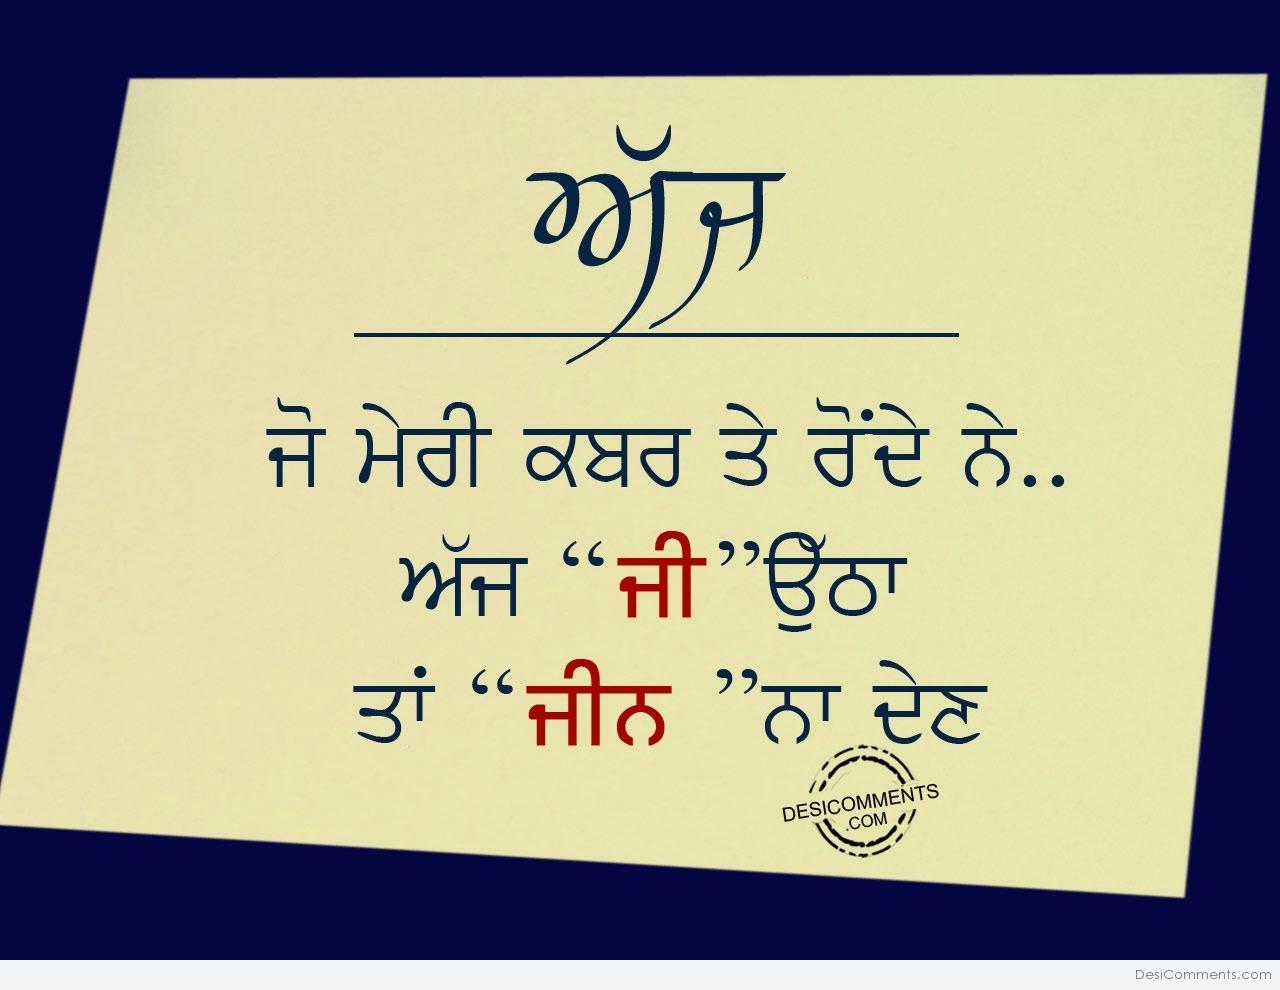 ਅੱਜ
ਜੋ ਮੇਰੀ ਕਬਰ ਤੇ ਰੋਂਦੇ ਨੇ..
ਅੱਜ “ਜੀ”ਉੱਠਾ
ਤਾਂ “ਜੀਨ ”ਨਾ ਦੇਣ
DESICOMMENTS
.COM
DesiComments.com